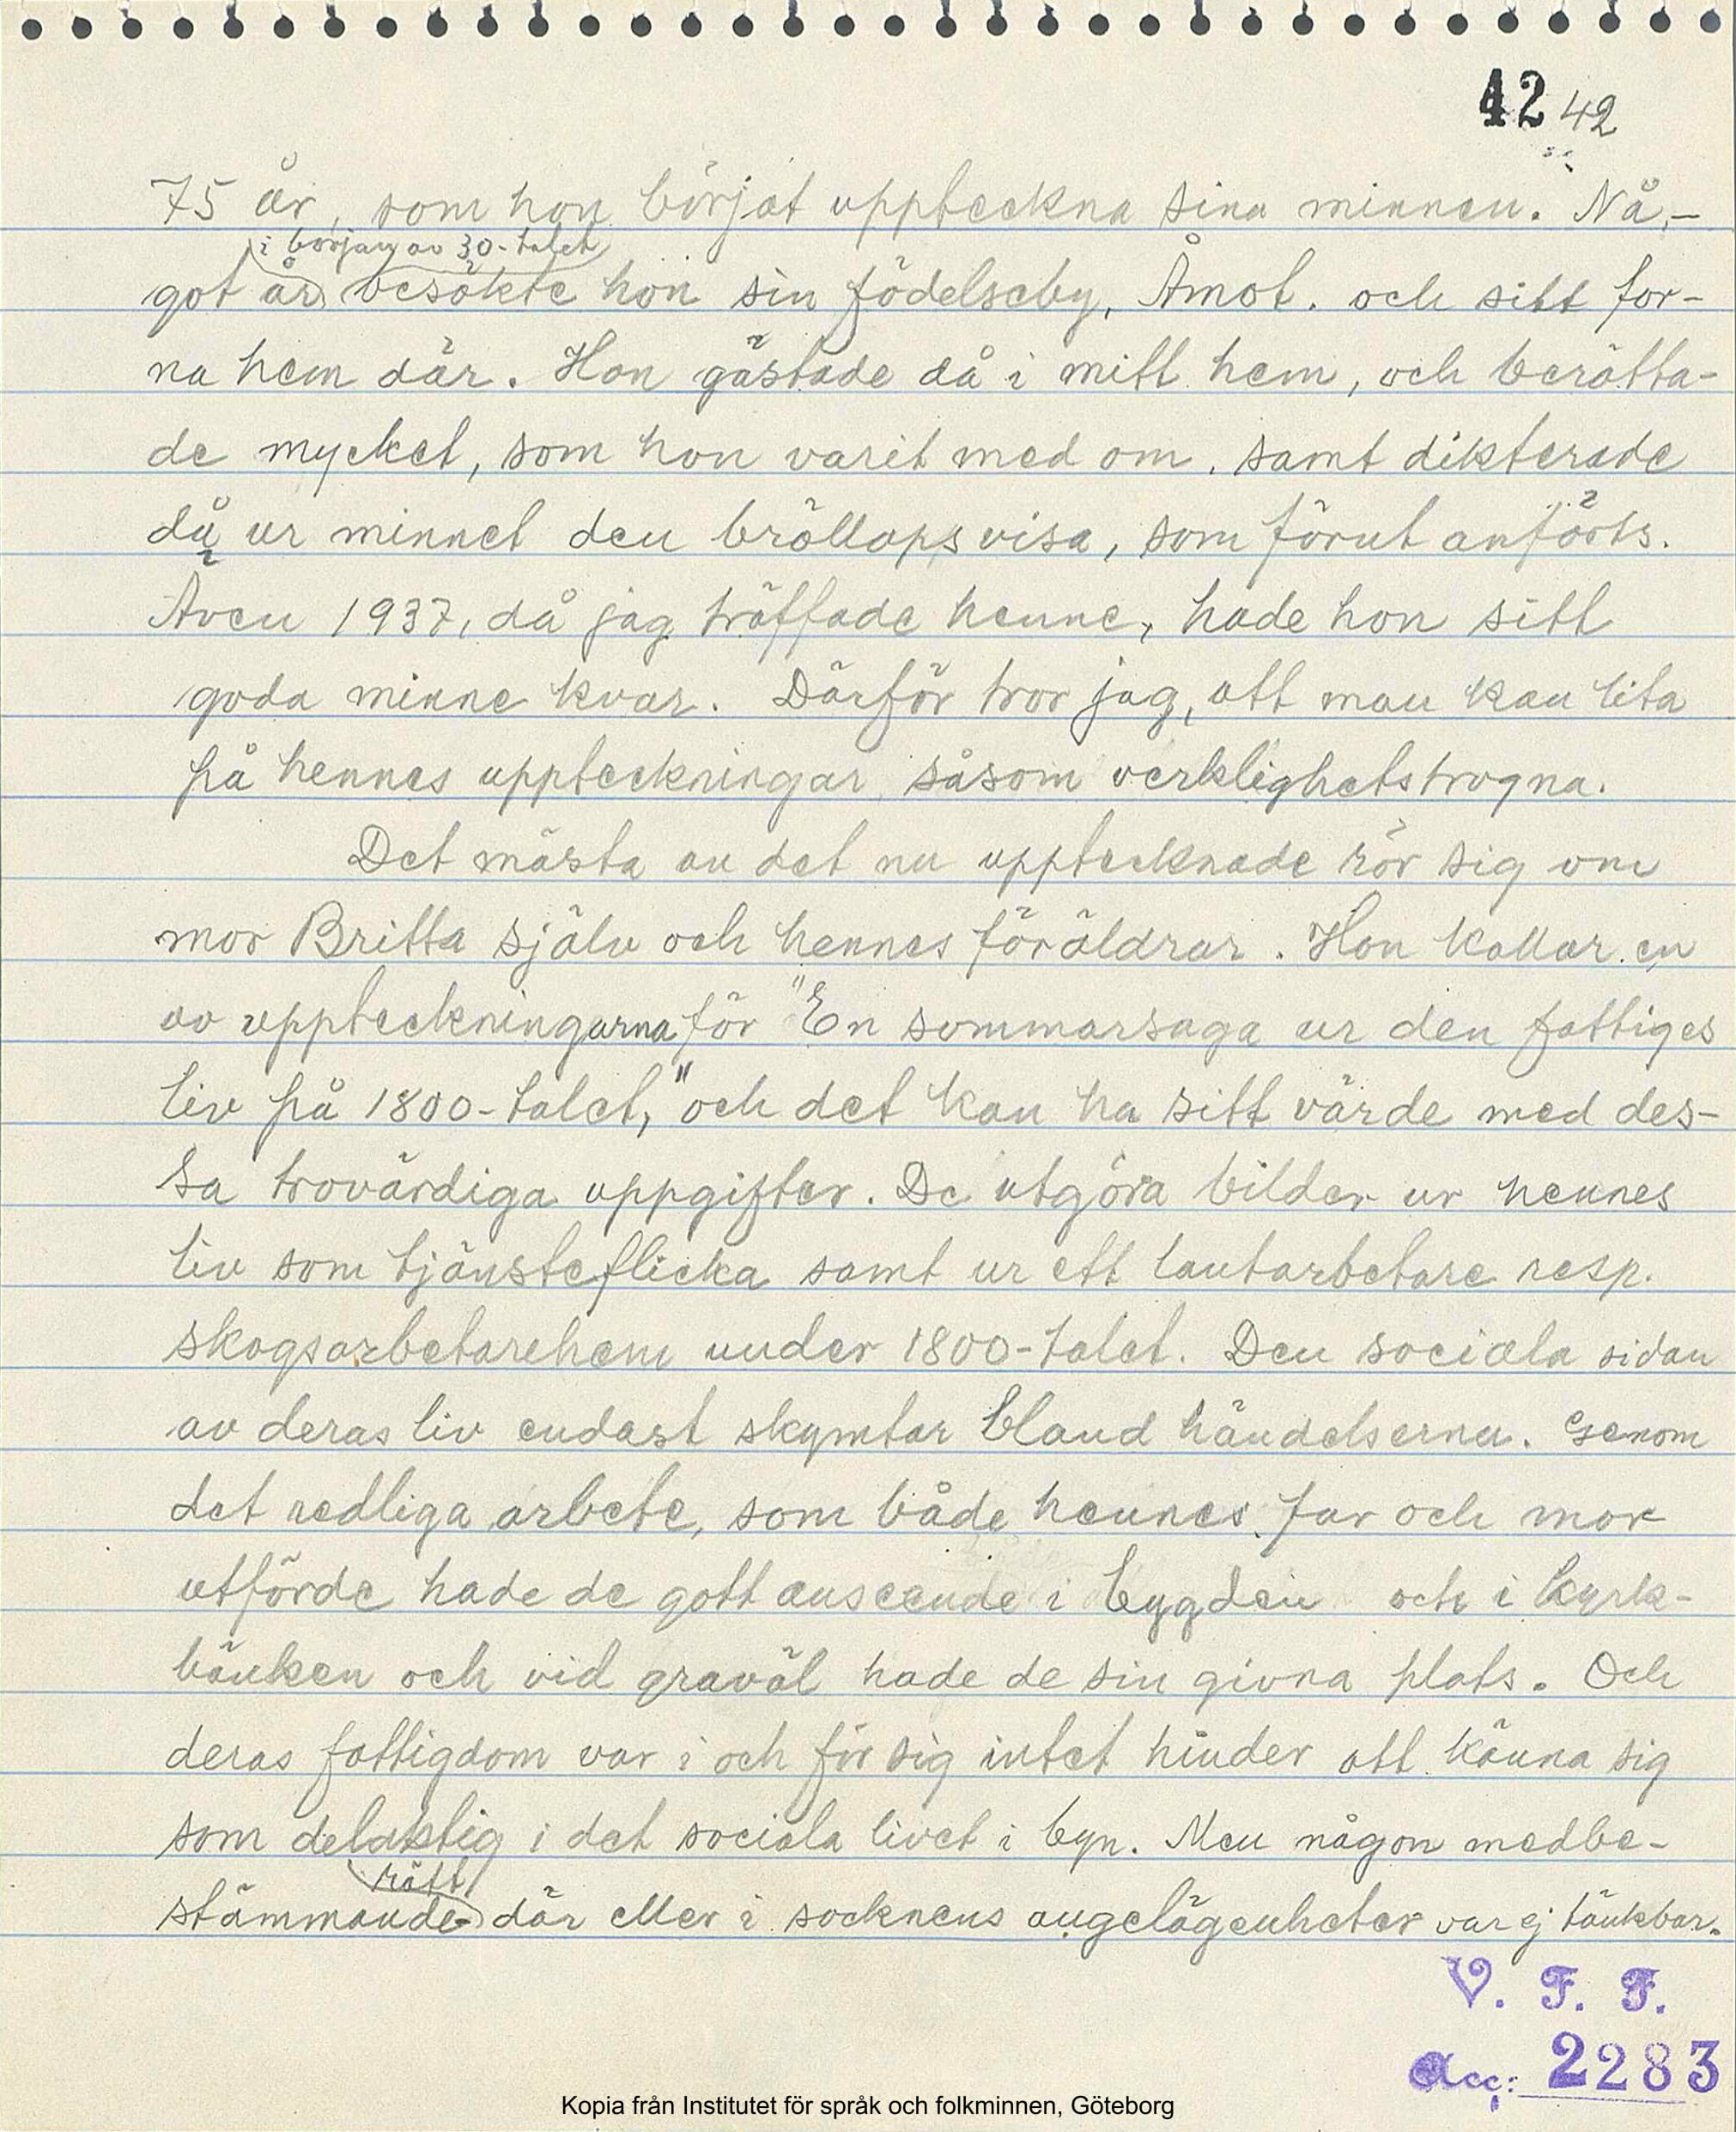 42 42
75 år, som hon börjat uppteckna sina minnen. Nå-
i början av 30-talet
got år besökte hon sin födelseby, Åmot. och sitt for-
na hem där. Hon gästade då i mitt hem, och berätta-
de mycket, som hon varit med om, samt dikterade
då ur minnet den bröllopsvisa, som förut anförts.
Även 1937, då jag träffade henne, hade hon sitt
goda minne kvar. Därför tror jag, att man kan lita
på hennes uppteckningar såsom verklighetstrogna.
Det mästa av det nu upptecknade rör sig om
mor Britta själv och hennes föräldrar. Hon kallar en
av uppteckningarna för "En sommarsaga ur den fattiges
liv på 1800-talet," och det kan ha sitt värde med des-
sa trovärdiga uppgifter. De utgöra bilder ur hennes
liv som tjänsteflicka samt ur ett lantarbetare resp.
skogsarbetarehem under 1800-talet. Den sociala sidan
av deras liv endast skymtar bland händelserna. Genom
det redliga arbete, som både hennes far och mor
utförde hade de gott anseende i bygden och i kyrk-
bänken och vid gravöl hade de sin givna plats. Och
deras fattigdom var i och för sig intet hinder att känna sig
som delaktig i det sociala livet i byn. Men någon medbe-
rätt
stämmande- där eller i socknens angelägenheter var ej tänkbar.
V. F. F.
Acc: 2283
Kopia från Institutet för språk och folkminnen, Göteborg